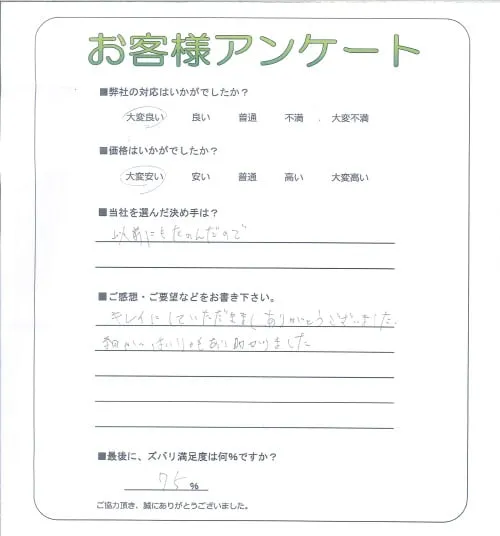 お客様アンケート
■弊社の対応はいかがでしたか？
大変良い 良い 普通 不満 大変不満
■価格はいかがでしたか？
大変安い 安い 普通 高い 大変高い
■当社を選んだ決め手は？
以前にもたのんだので
■ご感想・ご要望などをお書き下さい。
キレイにしていただきまし ありがとうございました。
助かりました
■最後に、ズバリ満足度は何%ですか？
75 %
ご協力頂き、誠にありがとうございました。